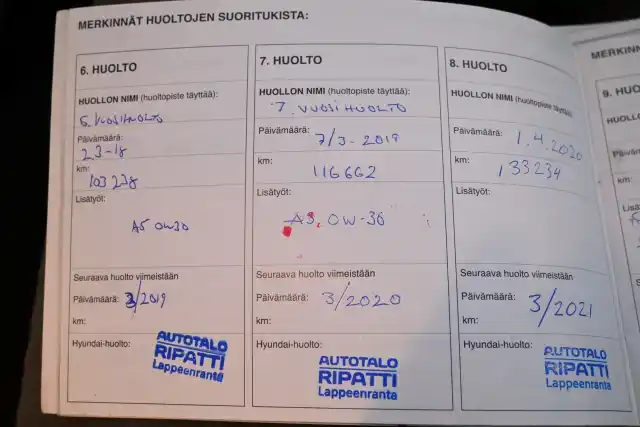 MERKINNÄT HUOLTOJEN SUORITUKISTA:
6. HUOLTO
HUOLLON NIMI (huoltopiste täyttää):
6. VUOSIHUOLTO
Päivämäärä:
2.3-18
km:
103 238
Lisätyöt:
A5 0W30
Seuraava huolto viimeistään
Päivämäärä: 3/2019
km:
Hyundai-huolto:
AUTOTALO
RIPATTI
Lappeenranta
7. HUOLTO
HUOLLON NIMI (huoltopiste täyttää):
7. VUOSIHUOLTO
Päivämäärä: 7/3-2019
km:
116662
Lisätyöt:
A5, 0W-30
Seuraava huolto viimeistään
Päivämäärä: 3/2020
km:
Hyundai-huolto:
AUTOTALO
RIPATTI
Lappeenranta
8. HUOLTO
HUOLLON NIMI (huoltopiste täyttää)
Päivämäärä: 1.4.2020
km: 133234
Lisätyöt:
Seuraava huolto viimeistään
Päivämäärä: 3/2021
km:
Hyundai-huolto:
AUTOTALO
RIPATTI
Lappeenranta
MERKINN
9. HUO
HUOLL
Päivän
km:
Lisä